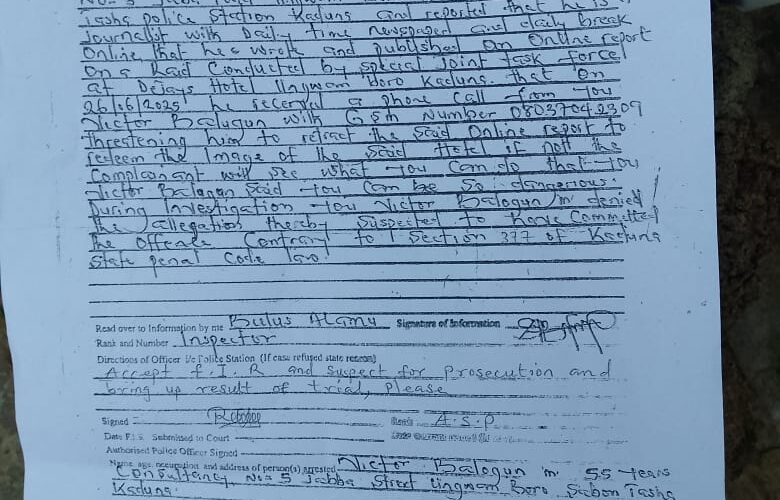 Tasha police Station Kaduna and reported that he is a
Journalist with Daily time newspaper and daily break
Online, that he wrote and published an online report
On a Raid Conducted by special Joint task force
at Dejays Hotel Ungwan boro Kaduna. that on
26/06/2025 he received a phone call from you
Victor Balogun with Gsm Number 08037042309
threatening him to retract the Said Online report to
redeem the Image of the Said Hotel if not the
Complainant will see what you can do that you
Victor Balogun Said you can be so dangerous.
During Investigation you Victor Balogun 'm' denied
the allegation thereby Suspected to have Committed
the Offence Contrary to Section 377 of Kaduna
State penal Code law
Read over to Information by me Bulus Alamu Signature of Information
Rank and Number Inspector
Directions of Officer I/c Police Station (If case refused state reason)
Accept F.I.R and Suspect for Prosecution and
bring up result of trial, please
Signed Rank A.S.P
Date F.I.S. Submitted to Court
Authorised Police Officer Signed
Name, age, occupation and address of person(s) arrested Victor Balogun 'm' 55 years
Consultancy No: 5 Jabba Street Ungwan Boro Sabon Tasha
Kaduna